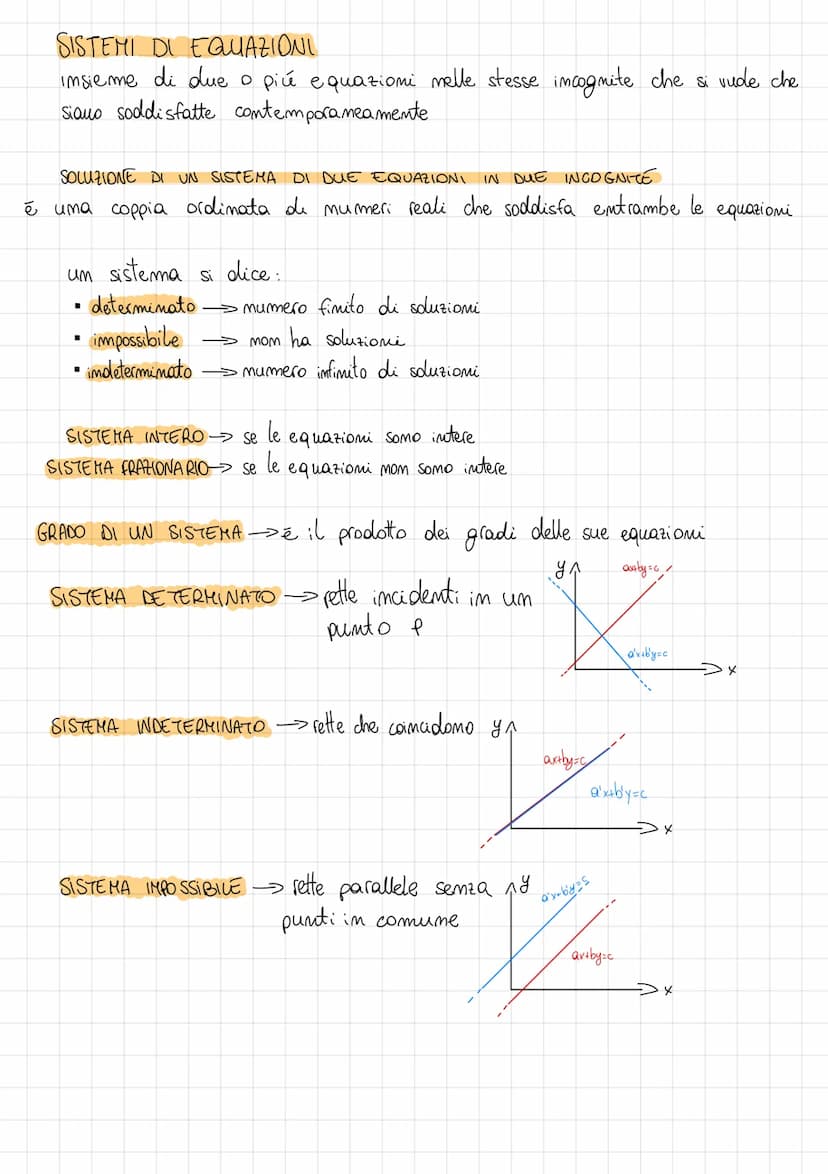 SISTEMI DI EQUAZIONI
insieme di due o piú equazioni nelle stesse incognite che si vude che
siano soddisfatte contemporaneamente
SOLUZIONE DI UN SISTEMA DI DUE EQUAZIONI IN DUE INCOGNITE
é una coppia ordinata di numeri reali che soddisfa entrambe le equazioni
un sistema si dice:
▪ determinato → numero finito di soluzioni
▪ impossibile → non ha soluzioni
▪ indeterminato → numero infinito di soluzioni
SISTEMA INTERO → se le equazioni sono intere
SISTEMA FRAZIONARIO → se le equazioni non sono intere
GRADO DI UN SISTEMA → é il prodotto dei gradi delle sue equazioni
y ax+by=c
SISTEMA DETERMINATO → rette incidenti in un
punto P
a'x+b'y=c
x
SISTEMA INDETERMINATO → rette che coincidono y
ax+by=c
a'x+b'y=c
x
SISTEMA IMPOSSIBILE → rette parallele senza y
punti in comune
ax+by=c
x